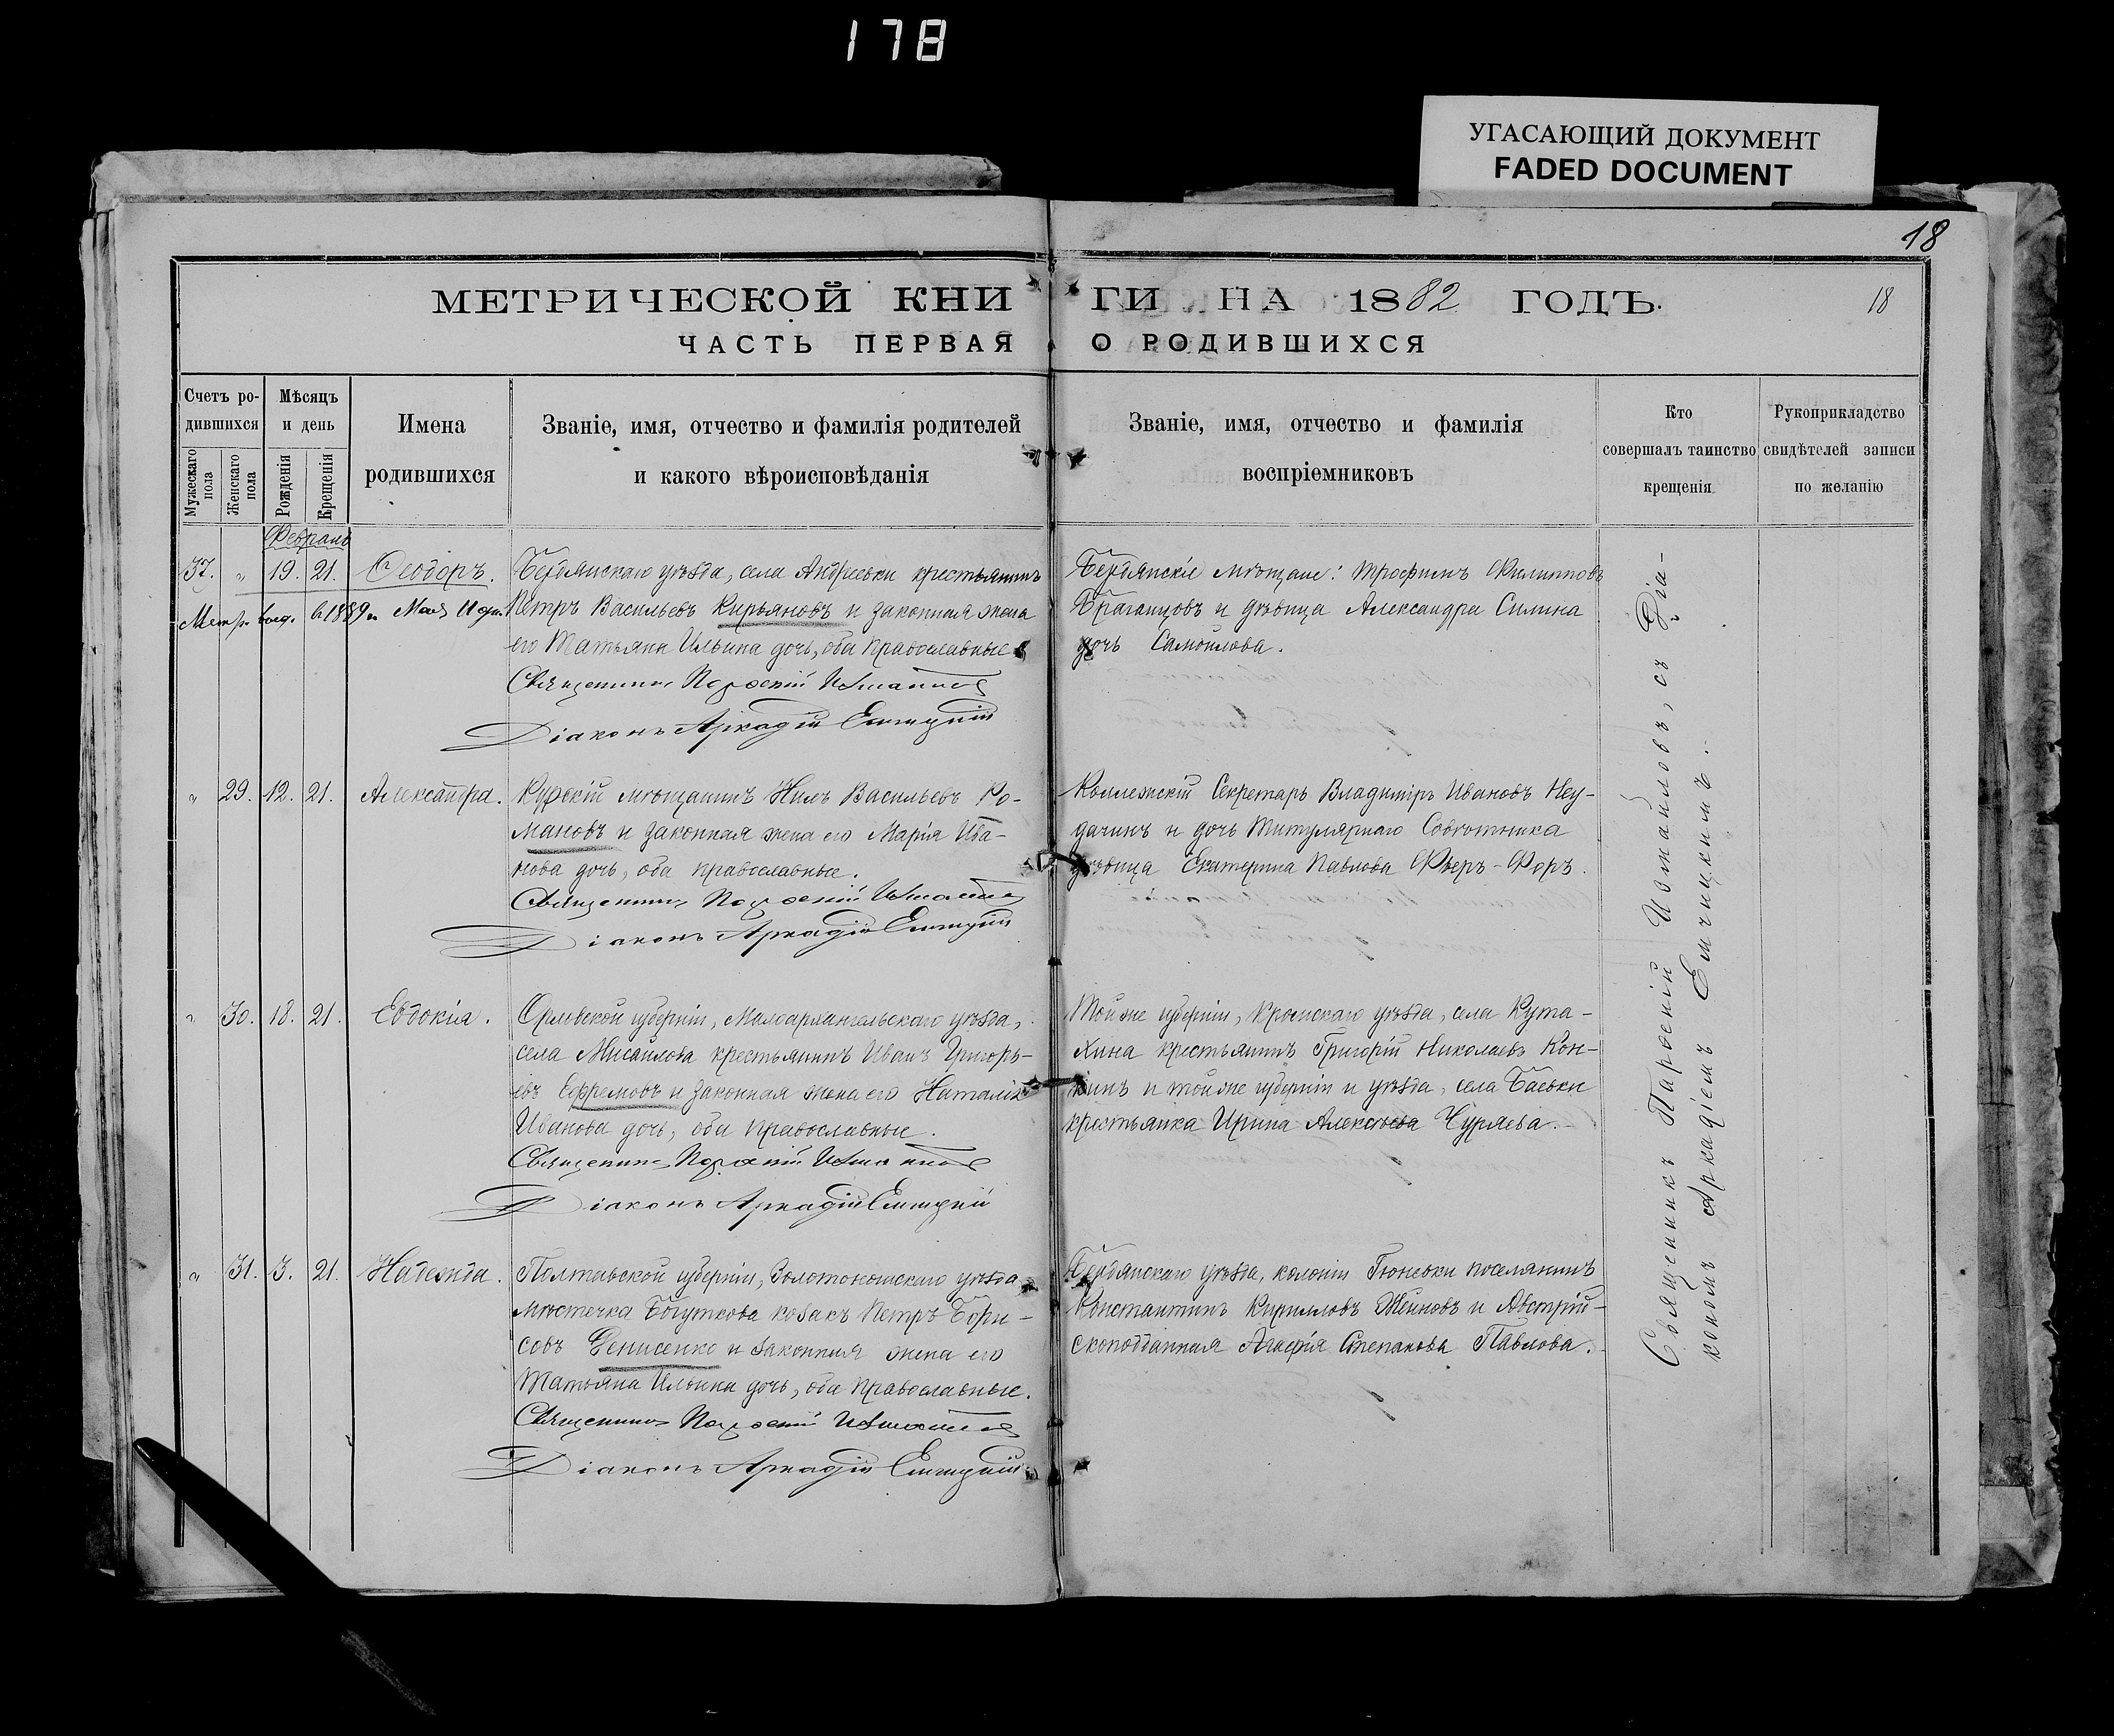 178
УГАСАЮЩИЙ ДОКУМЕНТ
FADED DOCUMENT
18
МЕТРИЧЕСКОЙ КНИГИ НА 1882 ГОДЪ.
18
ЧАСТЬ ПЕРВАЯ О РОДИВШИХСЯ
Счетъ ро-
дившихся
Мужескаго пола
Женскаго пола
Мѣсяцъ
и день
Рожденія
Крещенія
Имена
родившихся
Званіе, имя, отчество и фамилія родителей
и какого вѣроисповѣданія
Званіе, имя, отчество и фамилія
воспріемниковъ
Кто
совершалъ таинство
крещенія
Рукоприкладство
свидѣтелей записи
по желанію
Февраль
37. „ 19. 21. Ѳеодоръ.
Метр. выд. в 1889 г. Мая 11 дня
Бердянскаго уѣзда, села Андреевки крестьянинъ
Петръ Васильевъ Кирьяновъ и законная жена
его Татьяна Ильина дочь, оба православные
Священникъ Парѳеній Измаиловъ
Діаконъ Аркадій Емчицкій
Бердянскіе мѣщане: Трофимъ Филипповъ
Браганцовъ и дѣвица Александра Силина
дочь Самойлова.
„ 29. 12. 21. Александра.
Курскій мѣщанинъ Нилъ Васильевъ Ро-
мановъ и законная жена его Марія Ива-
нова дочь, оба православные.
Священникъ Парѳеній Измаиловъ
Діаконъ Аркадій Емчицкій
Коллежскій Секретарь Владиміръ Ивановъ Неу-
дачинъ и дочь Титулярнаго Совѣтника
дѣвица Екатерина Павлова Фьеръ-Форъ.
„ 30. 18. 21. Евдокія.
Орловской губерніи, Малоархангельскаго уѣзда,
села Мисайлова крестьянинъ Иванъ Григорь-
евъ Ефремовъ и законная жена его Наталія
Иванова дочь, оба православные.
Священникъ Парѳеній Измаиловъ
Діаконъ Аркадій Емчицкій
Той же губерніи, Кромскаго уѣзда, села Кута-
хина крестьянинъ Григорій Николаевъ Кон-
кинъ и той же губерніи и уѣзда, села Баевки
крестьянка Ирина Алексѣева Чуряева.
„ 31. 3. 21. Надежда.
Полтавской губерніи, Золотоношскаго уѣзда
мѣстечка Богушкова козакъ Петръ Бори-
совъ Денисенко и законная жена его
Татьяна Ильина дочь, оба православные.
Священникъ Парѳеній Измаиловъ
Діаконъ Аркадій Емчицкій
Бердянскаго уѣзда, колоніи Гюневки поселянинъ
Константинъ Кирилловъ Жейновъ и Австрій-
скоподданная Агафія Степанова Павлова.
Священникъ Парѳеній Измаиловъ, съ Діа-
кономъ Аркадіемъ Емчицкимъ.